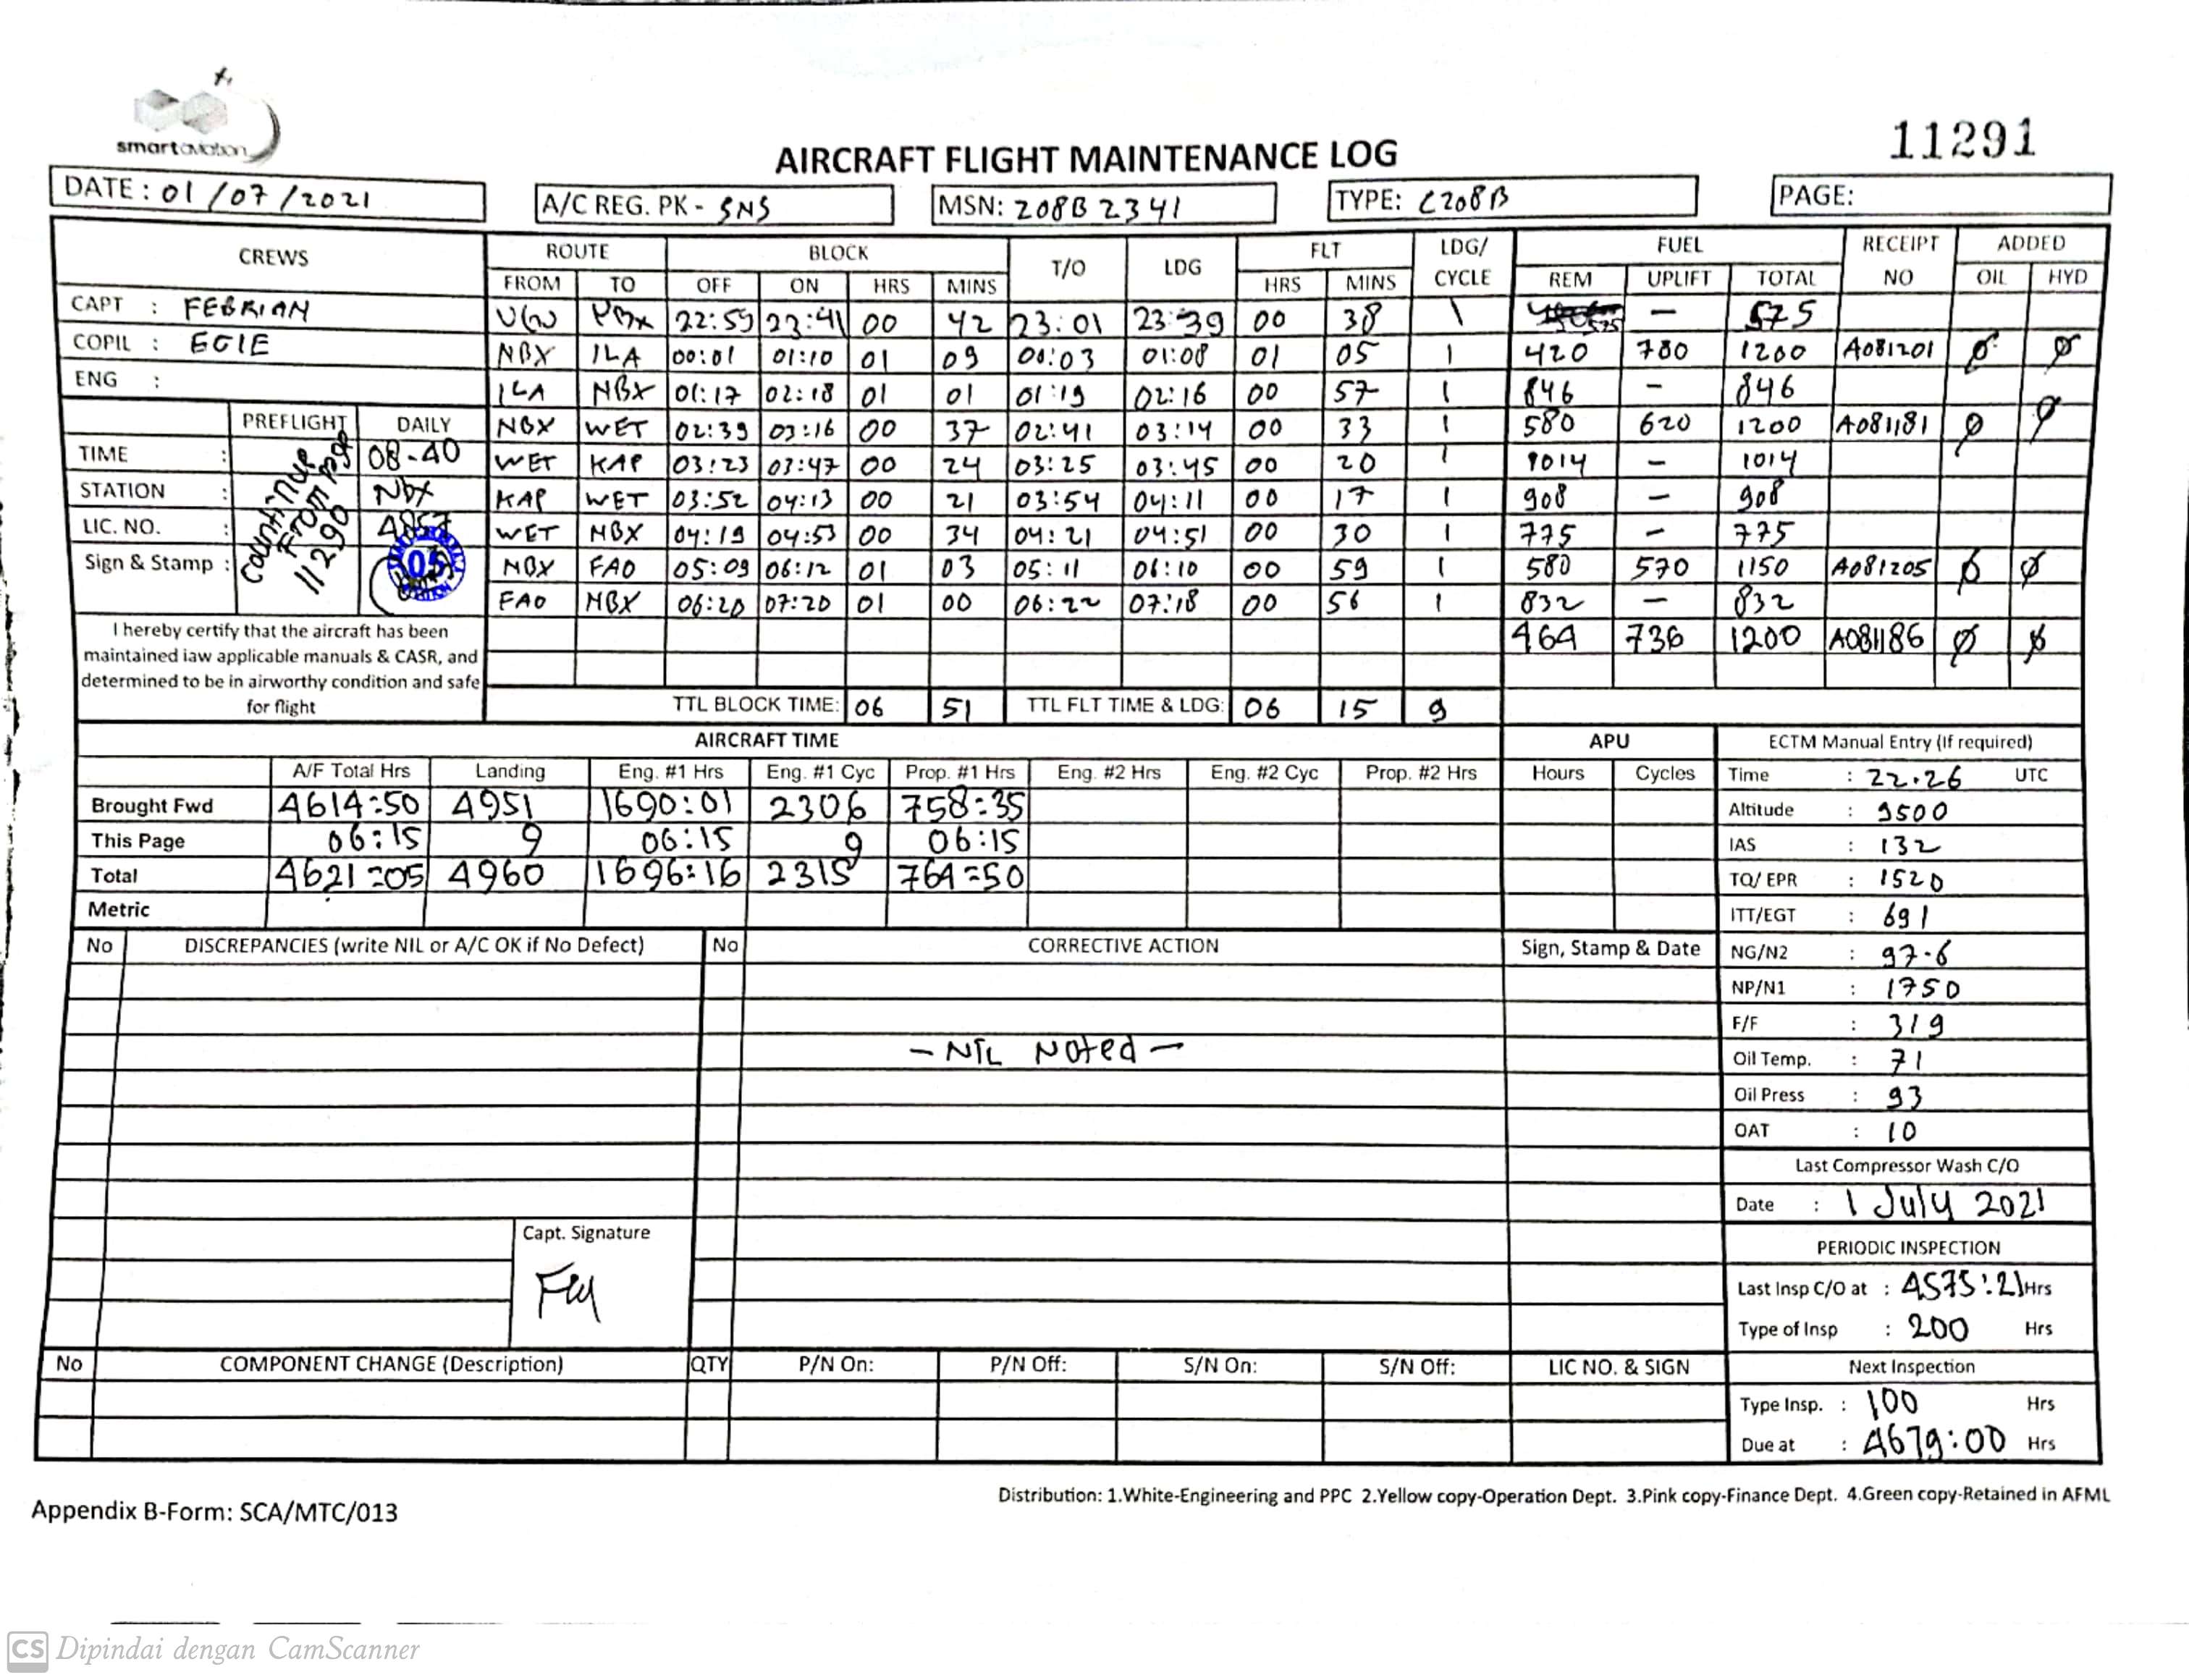 smart aviation
11291
AIRCRAFT FLIGHT MAINTENANCE LOG
DATE : 01/07/2021
A/C REG. PK - SNS
MSN: 208B 2341
TYPE: C208B
PAGE:
CREWS
ROUTE BLOCK T/O LDG FLT LDG/ CYCLE FUEL RECEIPT NO ADDED
FROM TO OFF ON HRS MINS HRS MINS REM UPLIFT TOTAL OIL HYD
CAPT : FEBRIAN
COPIL : EGIE
ENG :
22:59 23:41 00 42 23:01 23:39 00 38 1 575 — 575
NBX ILA 00:01 01:10 01 09 00:03 01:08 01 05 1 420 780 1200 A081201 Ø Ø
ILA NBX 01:17 02:18 01 01 01:19 02:16 00 57 1 846 — 846
NBX WET 02:39 03:16 00 37 02:41 03:14 00 33 1 580 620 1200 A081181 Ø Ø
WET KAP 03:23 03:47 00 24 03:25 03:45 00 20 1 1014 — 1014
KAP WET 03:52 04:13 00 21 03:54 04:11 00 17 1 908 — 908
WET NBX 04:19 04:53 00 34 04:21 04:51 00 30 1 775 — 775
NBX FAO 05:09 06:12 01 03 05:11 06:10 00 59 1 580 570 1150 A081205 Ø Ø
FAO NBX 06:20 07:20 01 00 06:22 07:18 00 56 1 832 — 832
464 736 1200 A081186 Ø Ø
PREFLIGHT DAILY
TIME : 08-40
STATION : Nbx
LIC. NO. :
Sign & Stamp :
Countinue
From Page
11290
05
I hereby certify that the aircraft has been
maintained iaw applicable manuals & CASR, and
determined to be in airworthy condition and safe
for flight
TTL BLOCK TIME: 06 51 TTL FLT TIME & LDG: 06 15 9
AIRCRAFT TIME
APU
A/F Total Hrs Landing Eng. #1 Hrs Eng. #1 Cyc Prop. #1 Hrs Eng. #2 Hrs Eng. #2 Cyc Prop. #2 Hrs Hours Cycles
Brought Fwd 4614:50 4951 1690:01 2306 758:35
This Page 06:15 9 06:15 9 06:15
Total 4621:05 4960 1696:16 2315 764:50
Metric
ECTM Manual Entry (If required)
Time : 22.26 UTC
Altitude : 9500
IAS : 132
TQ/ EPR : 1520
ITT/EGT : 691
NG/N2 : 97.6
NP/N1 : 1750
F/F : 319
Oil Temp. : 71
Oil Press : 93
OAT : 10
Last Compressor Wash C/O
Date : 1 July 2021
PERIODIC INSPECTION
Last Insp C/O at : 4575:21 Hrs
Type of Insp : 200 Hrs
Next Inspection
Type Insp. : 100 Hrs
Due at : 4679:00 Hrs
No DISCREPANCIES (write NIL or A/C OK if No Defect) No CORRECTIVE ACTION Sign, Stamp & Date
— NIL Noted —
Capt. Signature
No COMPONENT CHANGE (Description) QTY P/N On: P/N Off: S/N On: S/N Off: LIC NO. & SIGN
Distribution: 1.White-Engineering and PPC 2.Yellow copy-Operation Dept. 3.Pink copy-Finance Dept. 4.Green copy-Retained in AFML
Appendix B-Form: SCA/MTC/013
CS Dipindai dengan CamScanner